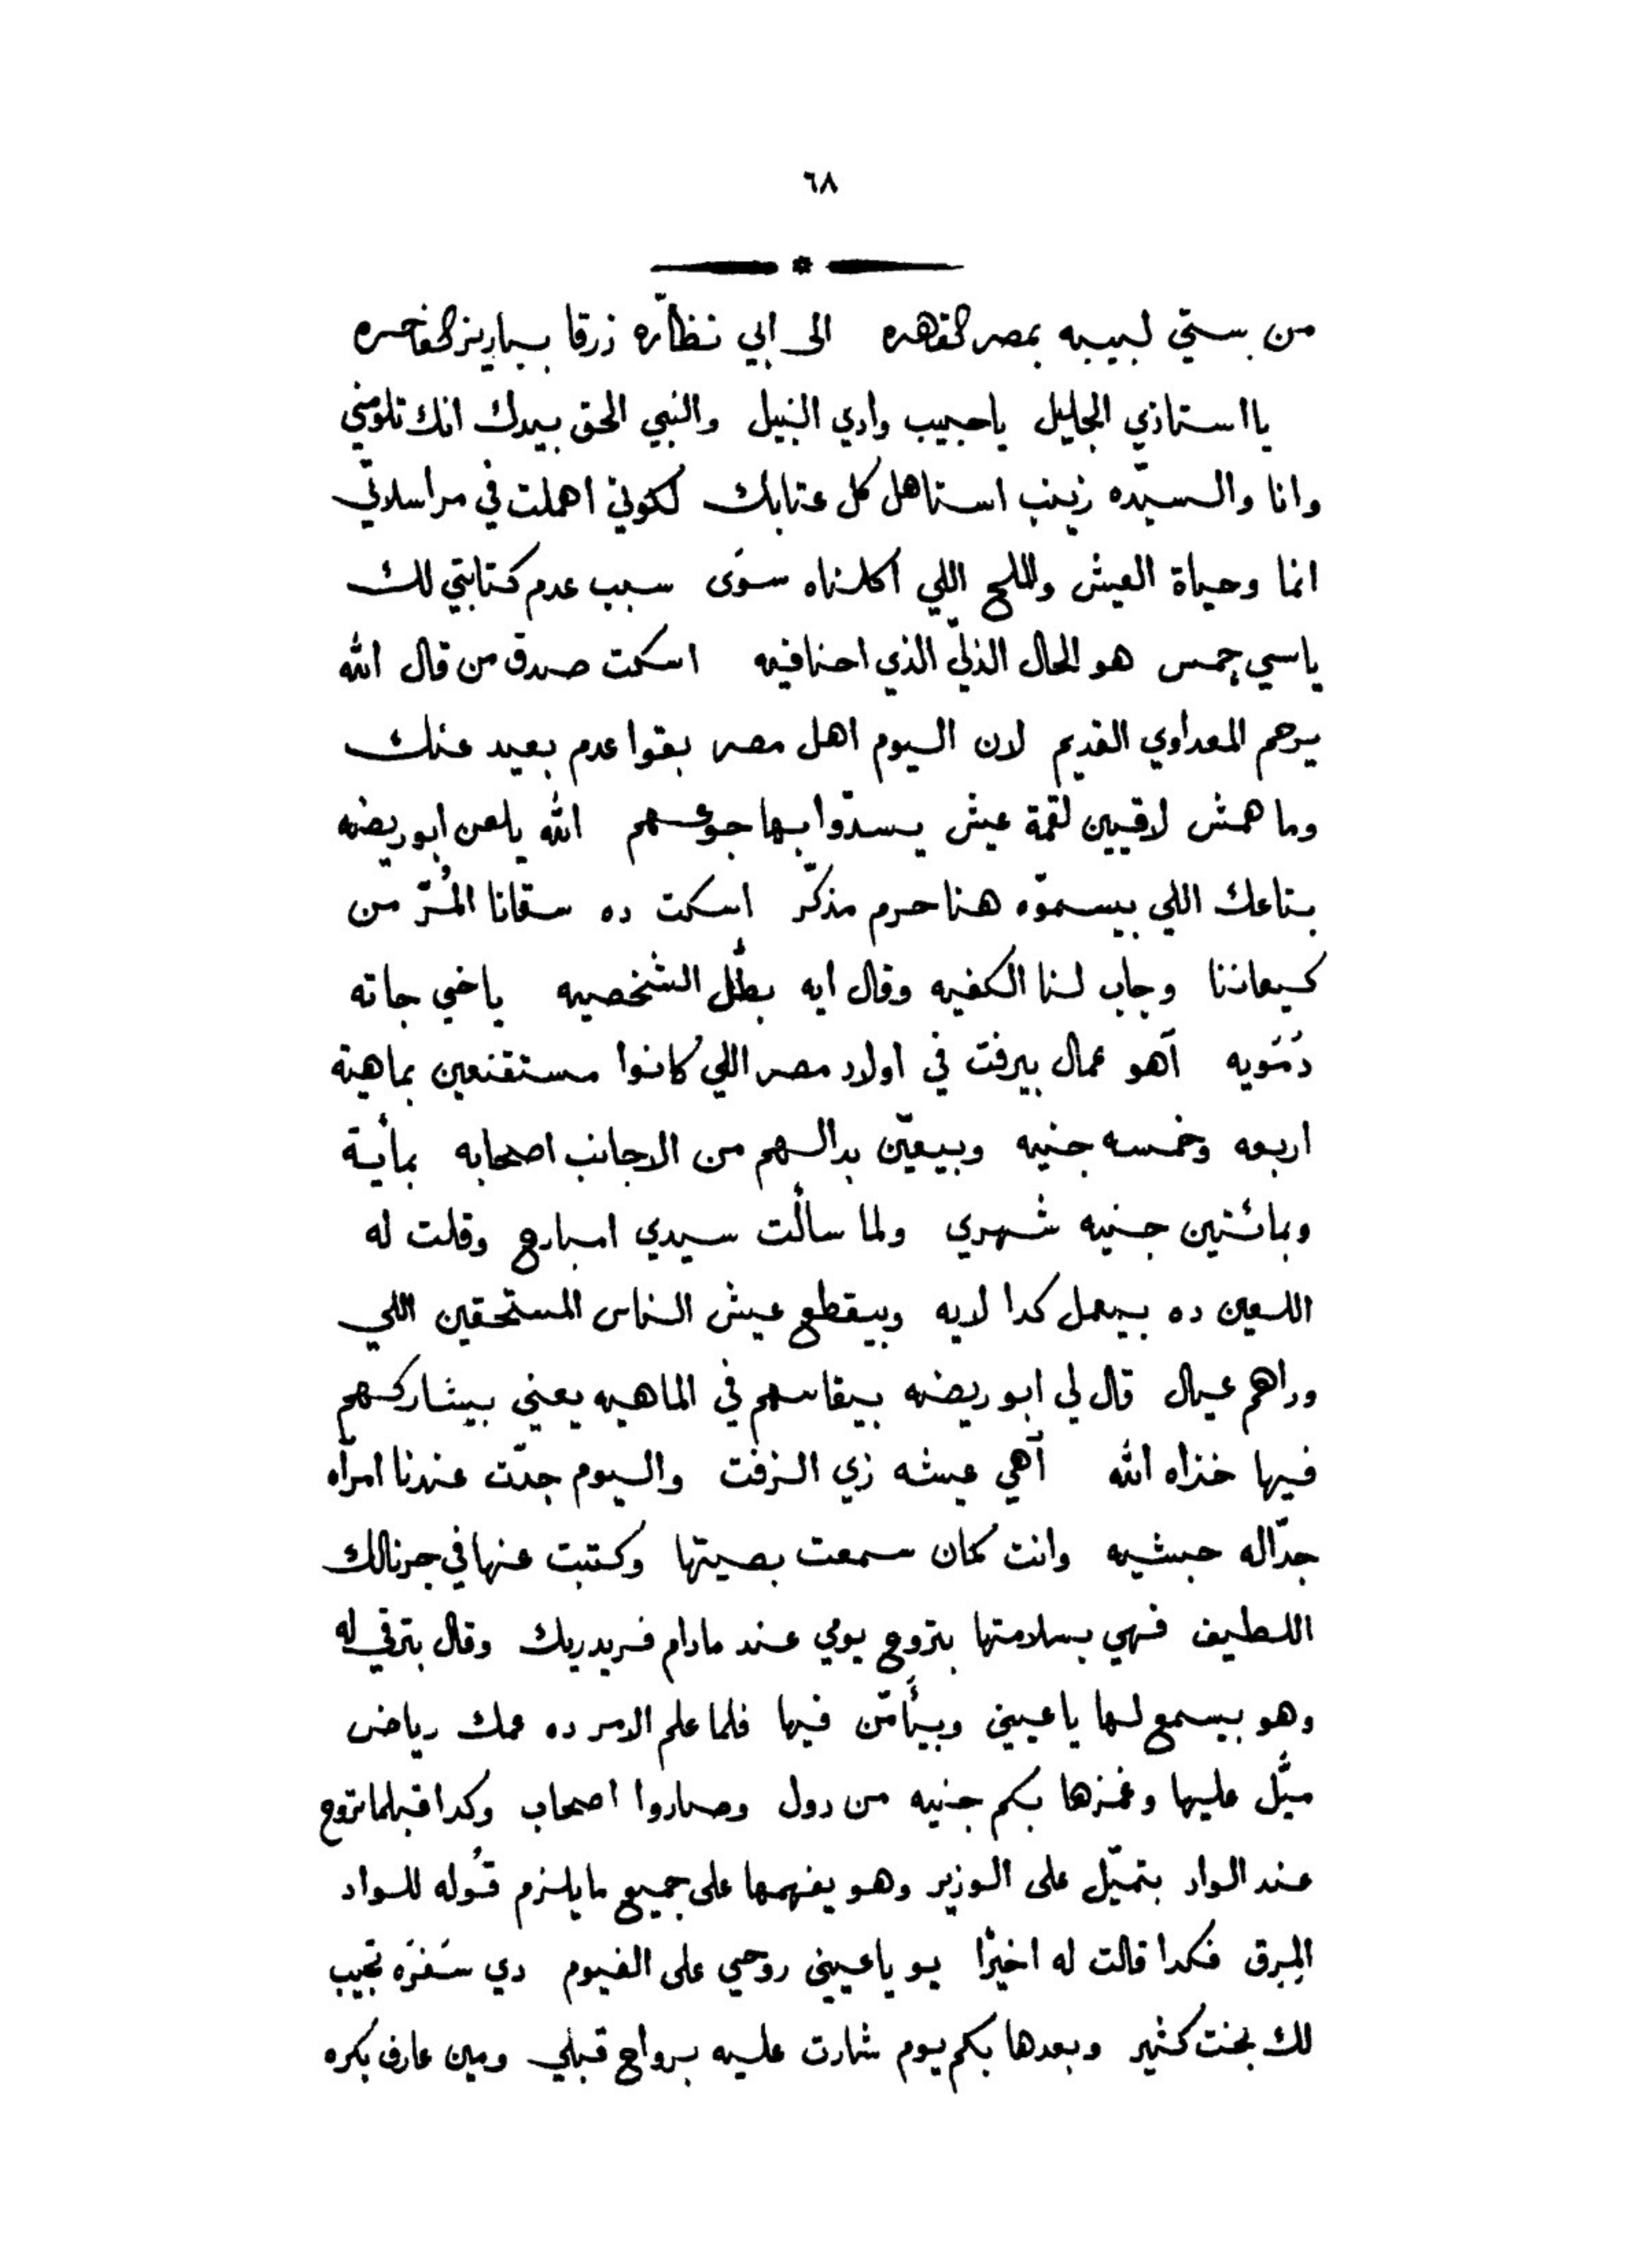 ٦٨
من ستي لبيبه بمصر القاهره الى ابي نظّاره زرقا بباريز الفاخره
يا استاذي الجليل يا حبيب وادي النيل والنبي الحق بيدك انك تلومني
وانا والسيّده زينب استاهل كل عتابك لكوني اهملت في مراسلاتي
انما وحياة العيش والملح اللي اكلناه سوَى سبب عدم كتابتي لك
ياسي جمس هو الحال الذليّ الذي احنا فيه اسكت صدق من قال الله
يرحم المعداوي القديم لان اليوم اهل مصر بقوا عدم بعيد عنك
وما همش لاقيين لقمة عيش يسدّوا بها جوعهم الله يلعن ابو ريضه
بتاعك اللي بيسموّه هنا حرم مذكّر اسكت ده سقانا المُرّ من
كيعاننا وجاب لنا الكفيه وقال ايه بطَّل الشخصيه ياخي جاته
دَمَويه آهو عمال بيرفت في اولاد مصر اللي كانوا مستقنعين بماهية
اربعه وخمسه جنيه وبيعيّن بدالهم من الاجانب اصحابه بمأية
وبمائتين جنيه شهري ولما سألت سيدي امبارح وقلت له
اللعين ده بيعمل كدا لايه وبيقطع عيش الناس المستحقين اللي
وراهم عيال قال لي ابو ريضه بيقاسهم في الماهيه يعني بيشاركهم
فيها خذاه الله آهي عيشه زي الزفت واليوم جدّت عندنا امرأه
جدّاله حبشيه وانت كمان سمعت بصيتها وكتبت عنها في جرنالك
اللطيف فهي بسلامتها بتروح يومي عند مادام فريدريك وقال بترقي له
وهو بيسمع لها ياعيني وبيأمّن فيها فلما علم الامر ده عمك رياض
ميَّل عليها وغمزها بكم جنيه من دول وصاروا اصحاب وكدا قبلما تروح
عند الواد بتميّل على الوزير وهو يفهمها على جميع ما يلزم قوله للواد
المِرق فكدا قالت له اخيرًا يو ياعيني روحي على الفيوم دي سَفرَه تجيب
لك بخت كثير وبعدها بكم يوم شارت عليه برواح قبلي ومين عارف بكره